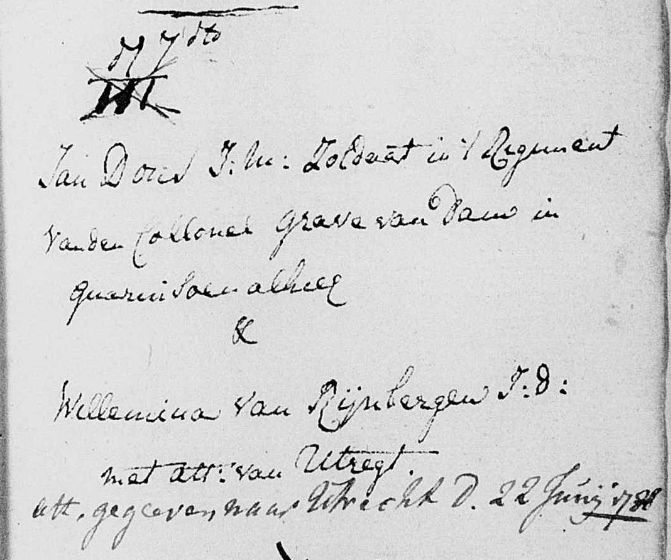 d 7 dto
Jan Dons J: M: Zoldaat in 't Regiment
van den Collonel Grave van Dam in
guarnisoen alhier
&
Willemina van Rijnbergen J: d:
met att: van Utregt.
att. gegeven naar Utrecht d. 22 Junij